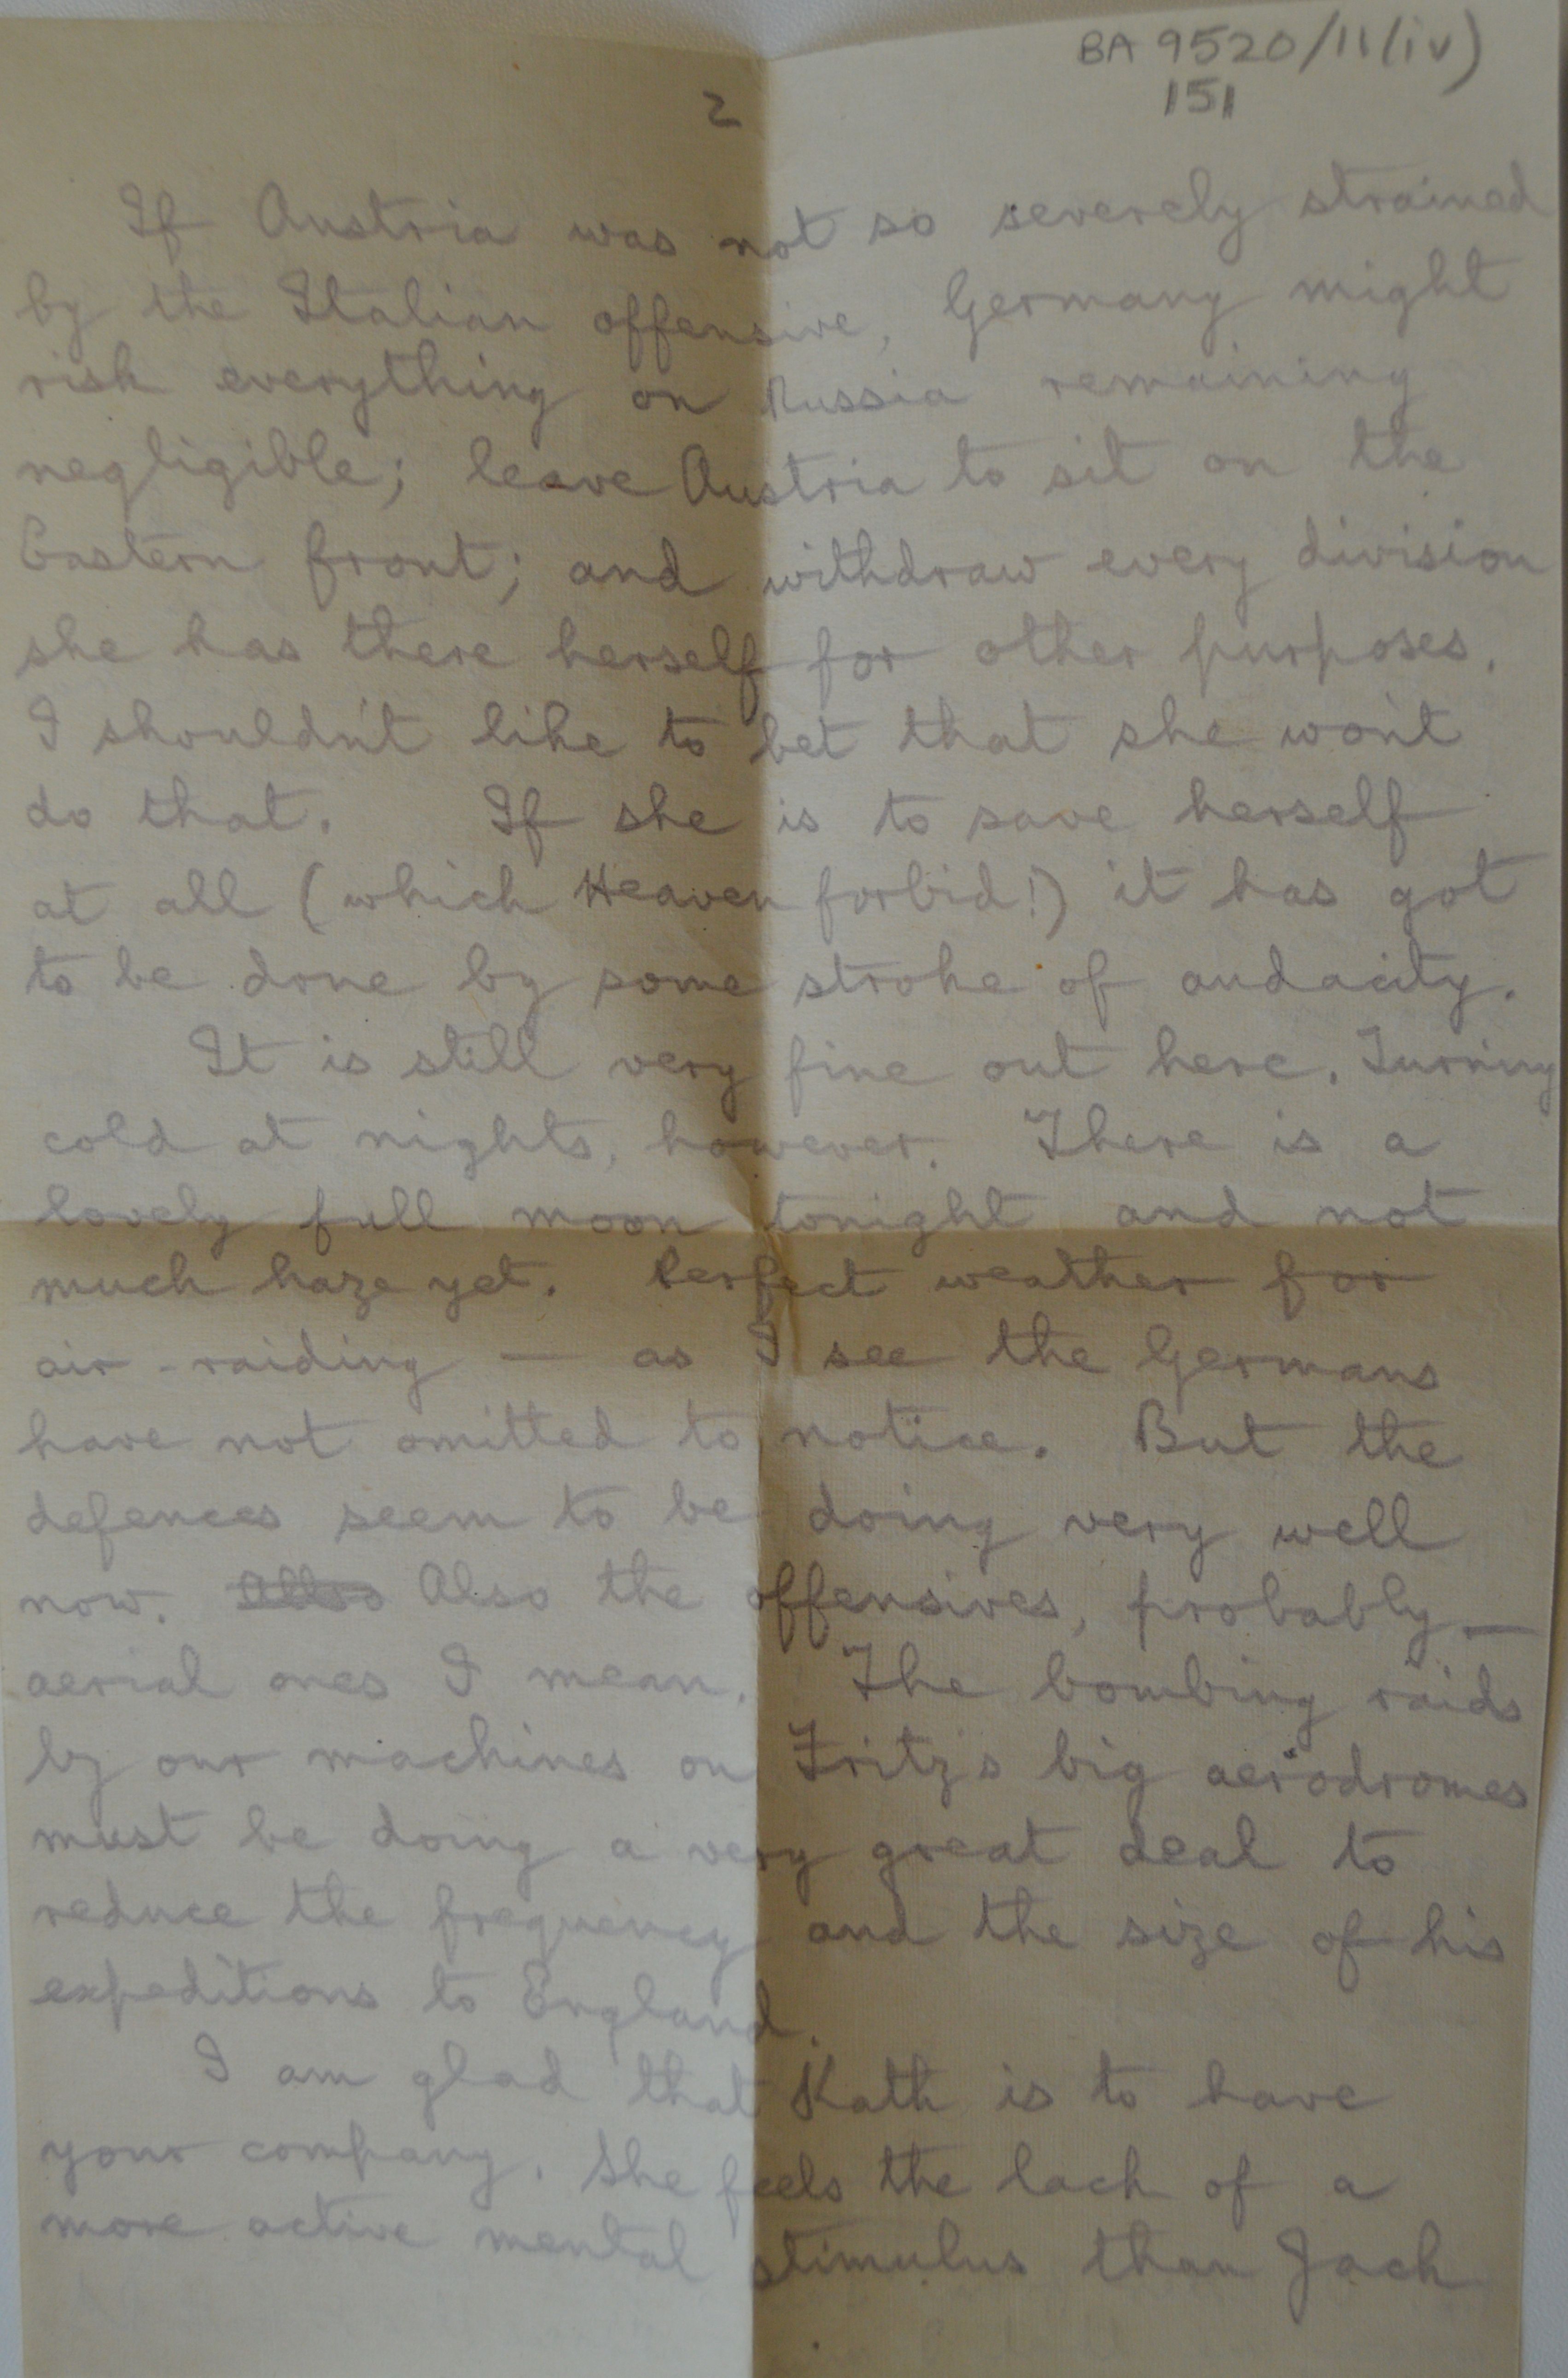 BA 9520/11(iv)
151
2
If Austria was not so severely strained
by the Italian offensive, Germany might
risk everything on Russia remaining
negligible; leave Austria to sit on the
Eastern front; and withdraw every division
she has there herself for other purposes.
I shouldn't like to bet that she won't
do that. If she is to save herself
at all (which Heaven forbid!) it has got
to be done by some stroke of audacity.
It is still very fine out here. Turning
cold at nights, however. There is a
lovely full moon tonight and not
much haze yet. Perfect weather for
air-raiding — as I see the Germans
have not omitted to notice. But the
defences seem to be doing very well
now. Also the offensives, probably —
aerial ones I mean. The bombing raids
by our machines on Fritz's big aerodromes
must be doing a very great deal to
reduce the frequency and the size of his
expeditions to England.
I am glad that Kath is to have
your company. She feels the lack of a
more active mental stimulus than Jack